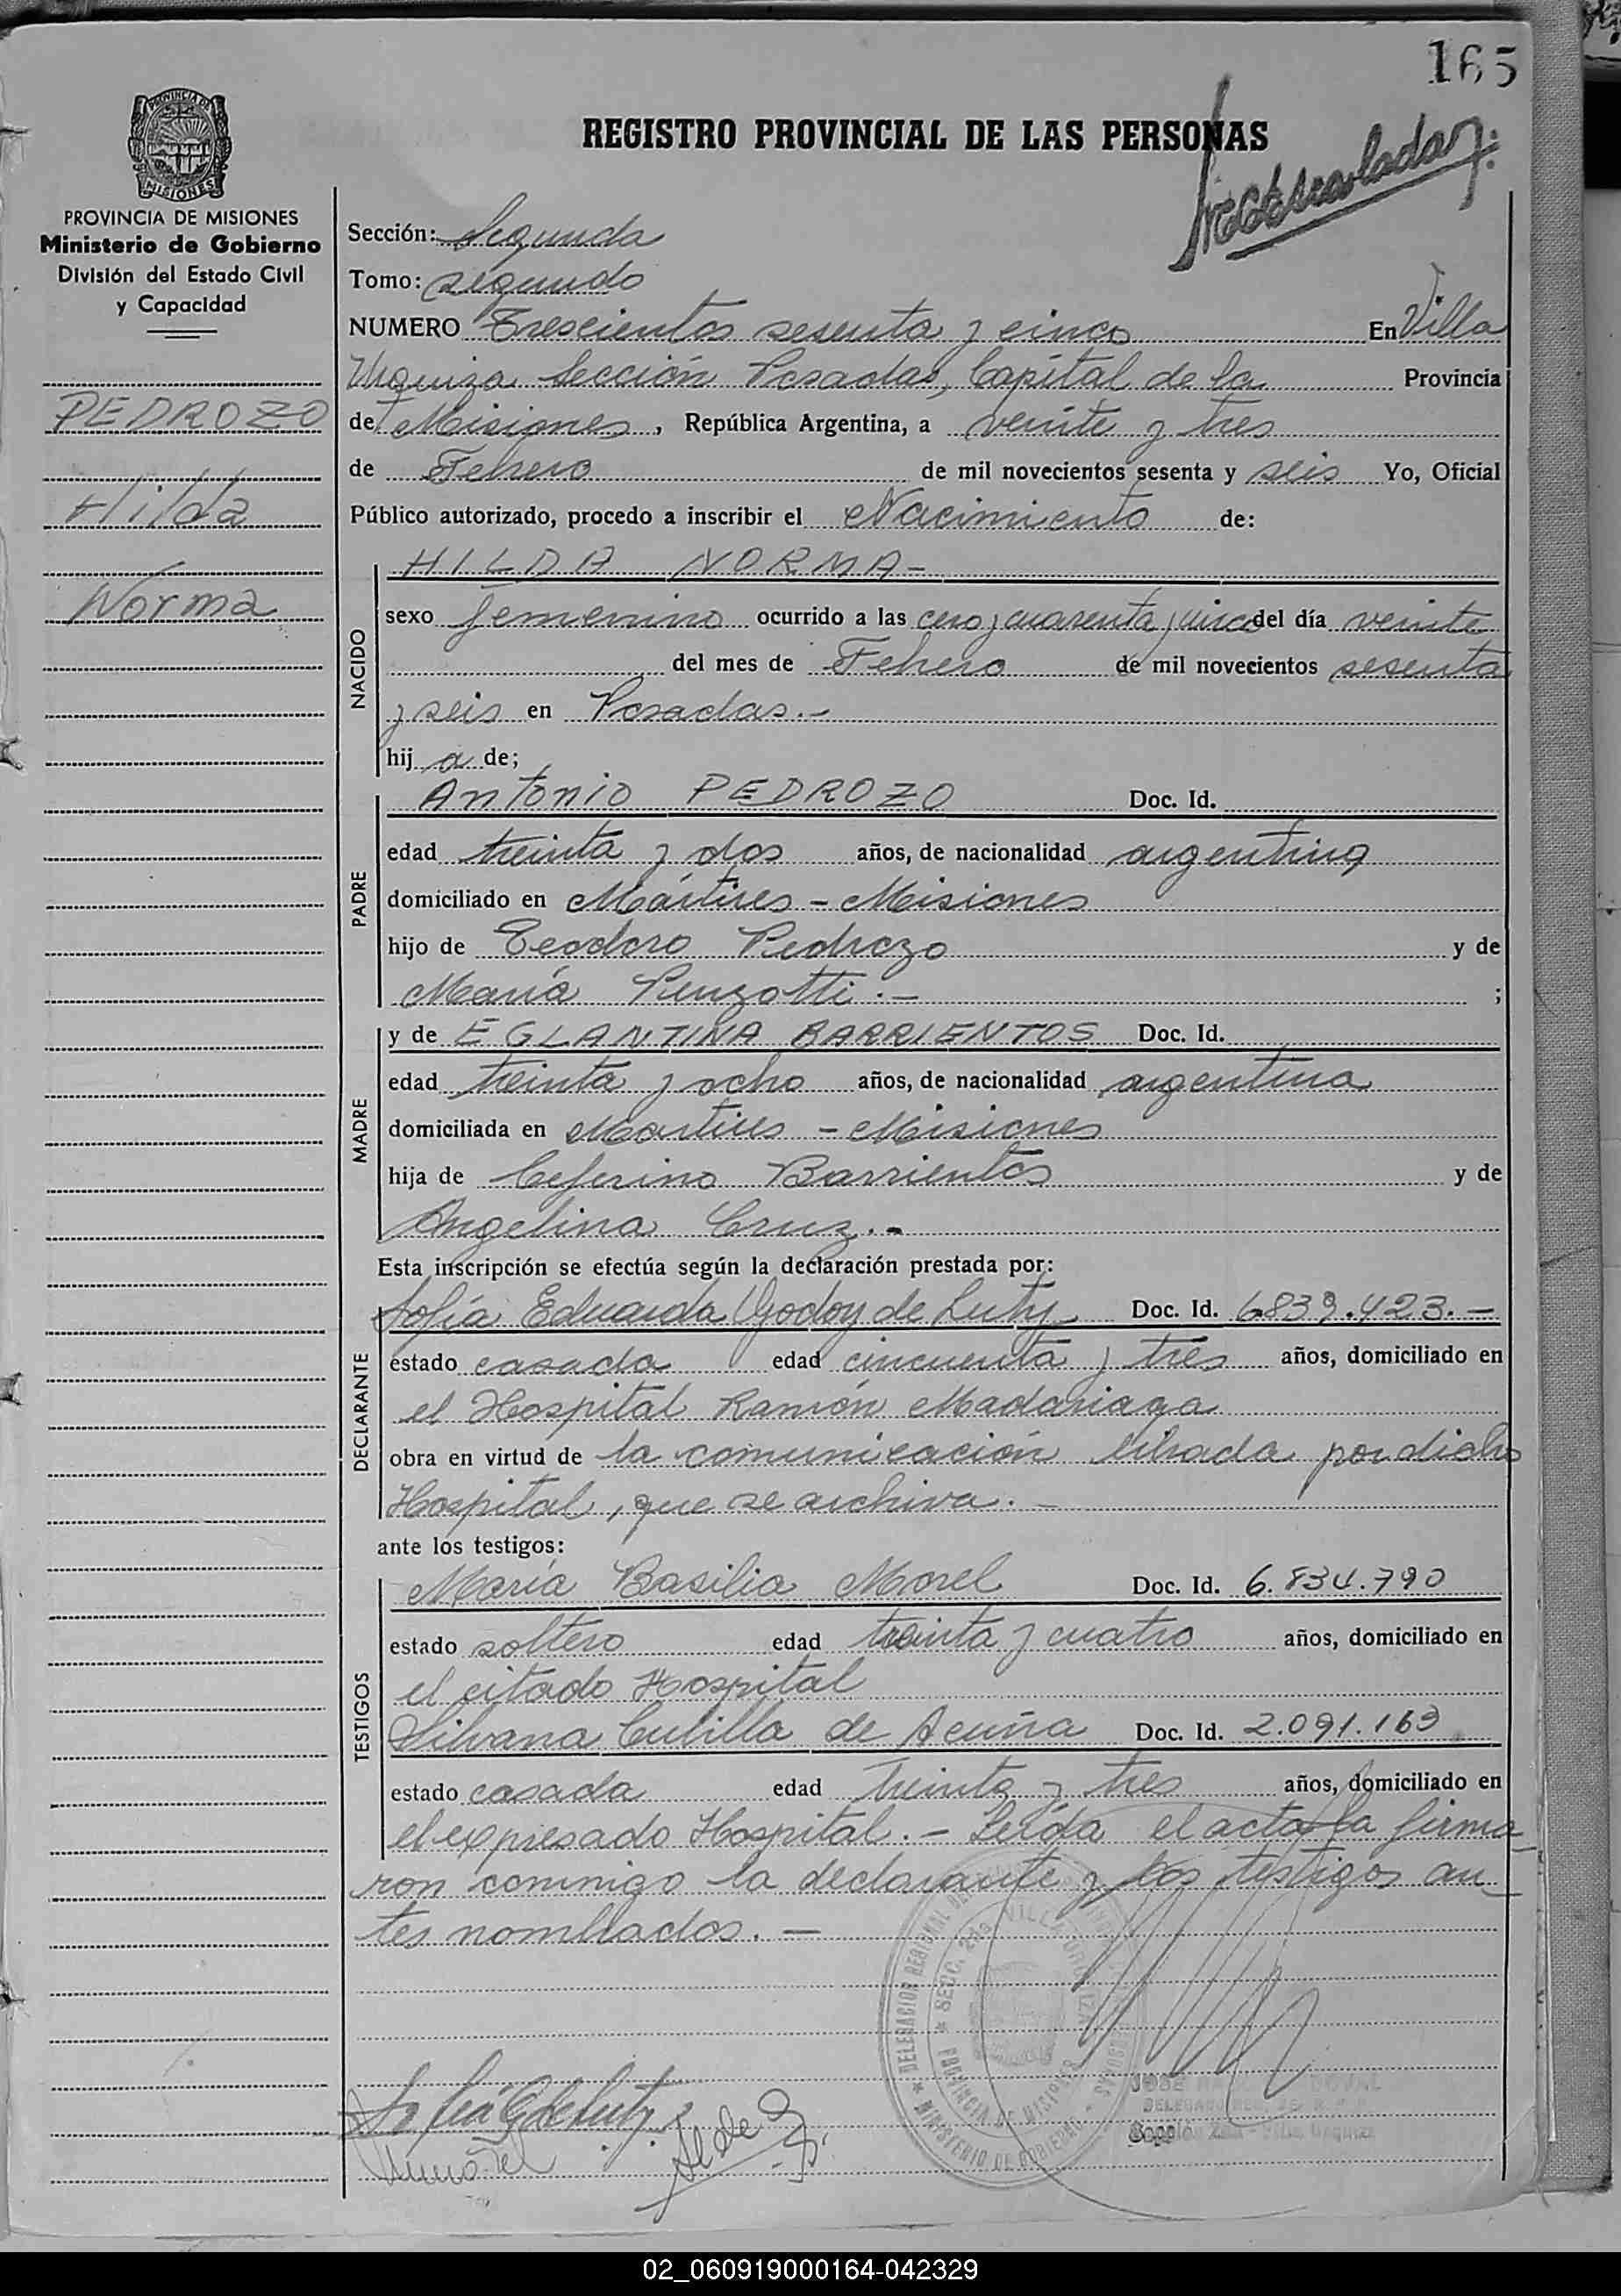 165
REGISTRO PROVINCIAL DE LAS PERSONAS
PROVINCIA DE MISIONES
Ministerio de Gobierno
División del Estado Civil
y Capacidad
PEDROZO
Hilda
Norma
Sección: Segunda
Tomo: segundo
NUMERO Trescientos sesenta y cinco En Villa
Urquiza Sección Posadas, Capital de la Provincia
de Misiones, República Argentina, a veinte y tres
de Febrero de mil novecientos sesenta y seis Yo, Oficial
Público autorizado, procedo a inscribir el Nacimiento de:
NACIDO
HILDA NORMA-
sexo femenino ocurrido a las cero y cuarenta y cinco del día veinte
del mes de Febrero de mil novecientos sesenta
y seis en Posadas.-
hija de;
PADRE
Antonio PEDROZO Doc. Id.
edad treinta y dos años, de nacionalidad argentina
domiciliado en Mártires - Misiones
hijo de Teodoro Pedrozo y de
María Penzotti.- ;
MADRE
y de EGLANTINA BARRIENTOS Doc. Id.
edad treinta y ocho años, de nacionalidad argentina
domiciliada en Martires - Misiones
hija de Ceferino Barrientos y de
Angelina Cruz.-
Esta inscripción se efectúa según la declaración prestada por:
DECLARANTE
Sofía Eduarda Godoy de Luty Doc. Id. 6.839.423.-
estado casada edad cincuenta y tres años, domiciliado en
el Hospital Ramón Madariaga
obra en virtud de la comunicación librada por dicho
Hospital, que se archiva.-
ante los testigos:
TESTIGOS
María Basilia Morel Doc. Id. 6.834.790
estado soltero edad treinta y cuatro años, domiciliado en
el citado Hospital
Silvana Cubilla de Acuña Doc. Id. 2.091.163
estado casada edad treinta y tres años, domiciliado en
el expresado Hospital.- Leída el acta la firma
ron conmigo la declarante y los testigos an-
tes nombrados.-
DELEGACION REGIONAL
SECC. 2da VILLA URQUIZA
PROVINCIA DE MISIONES
MINISTERIO DE GOBIERNO
JOSE
02_060919000164-042329